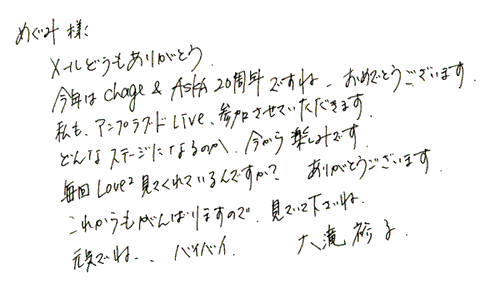 めぐみ様に
メールどうもありがとう、
今年は chage & ASKA 20周年ですね、おめでとうございます
私も、アンプラグド Live、参加させていただきます。
どんなステージになるのか、今から楽しみです
毎回 Love² 見てくれているんですか？ ありがとうございます
これからもがんばりますので、見ていて下さいね
元気でね、、バイバイ、 大滝裕子